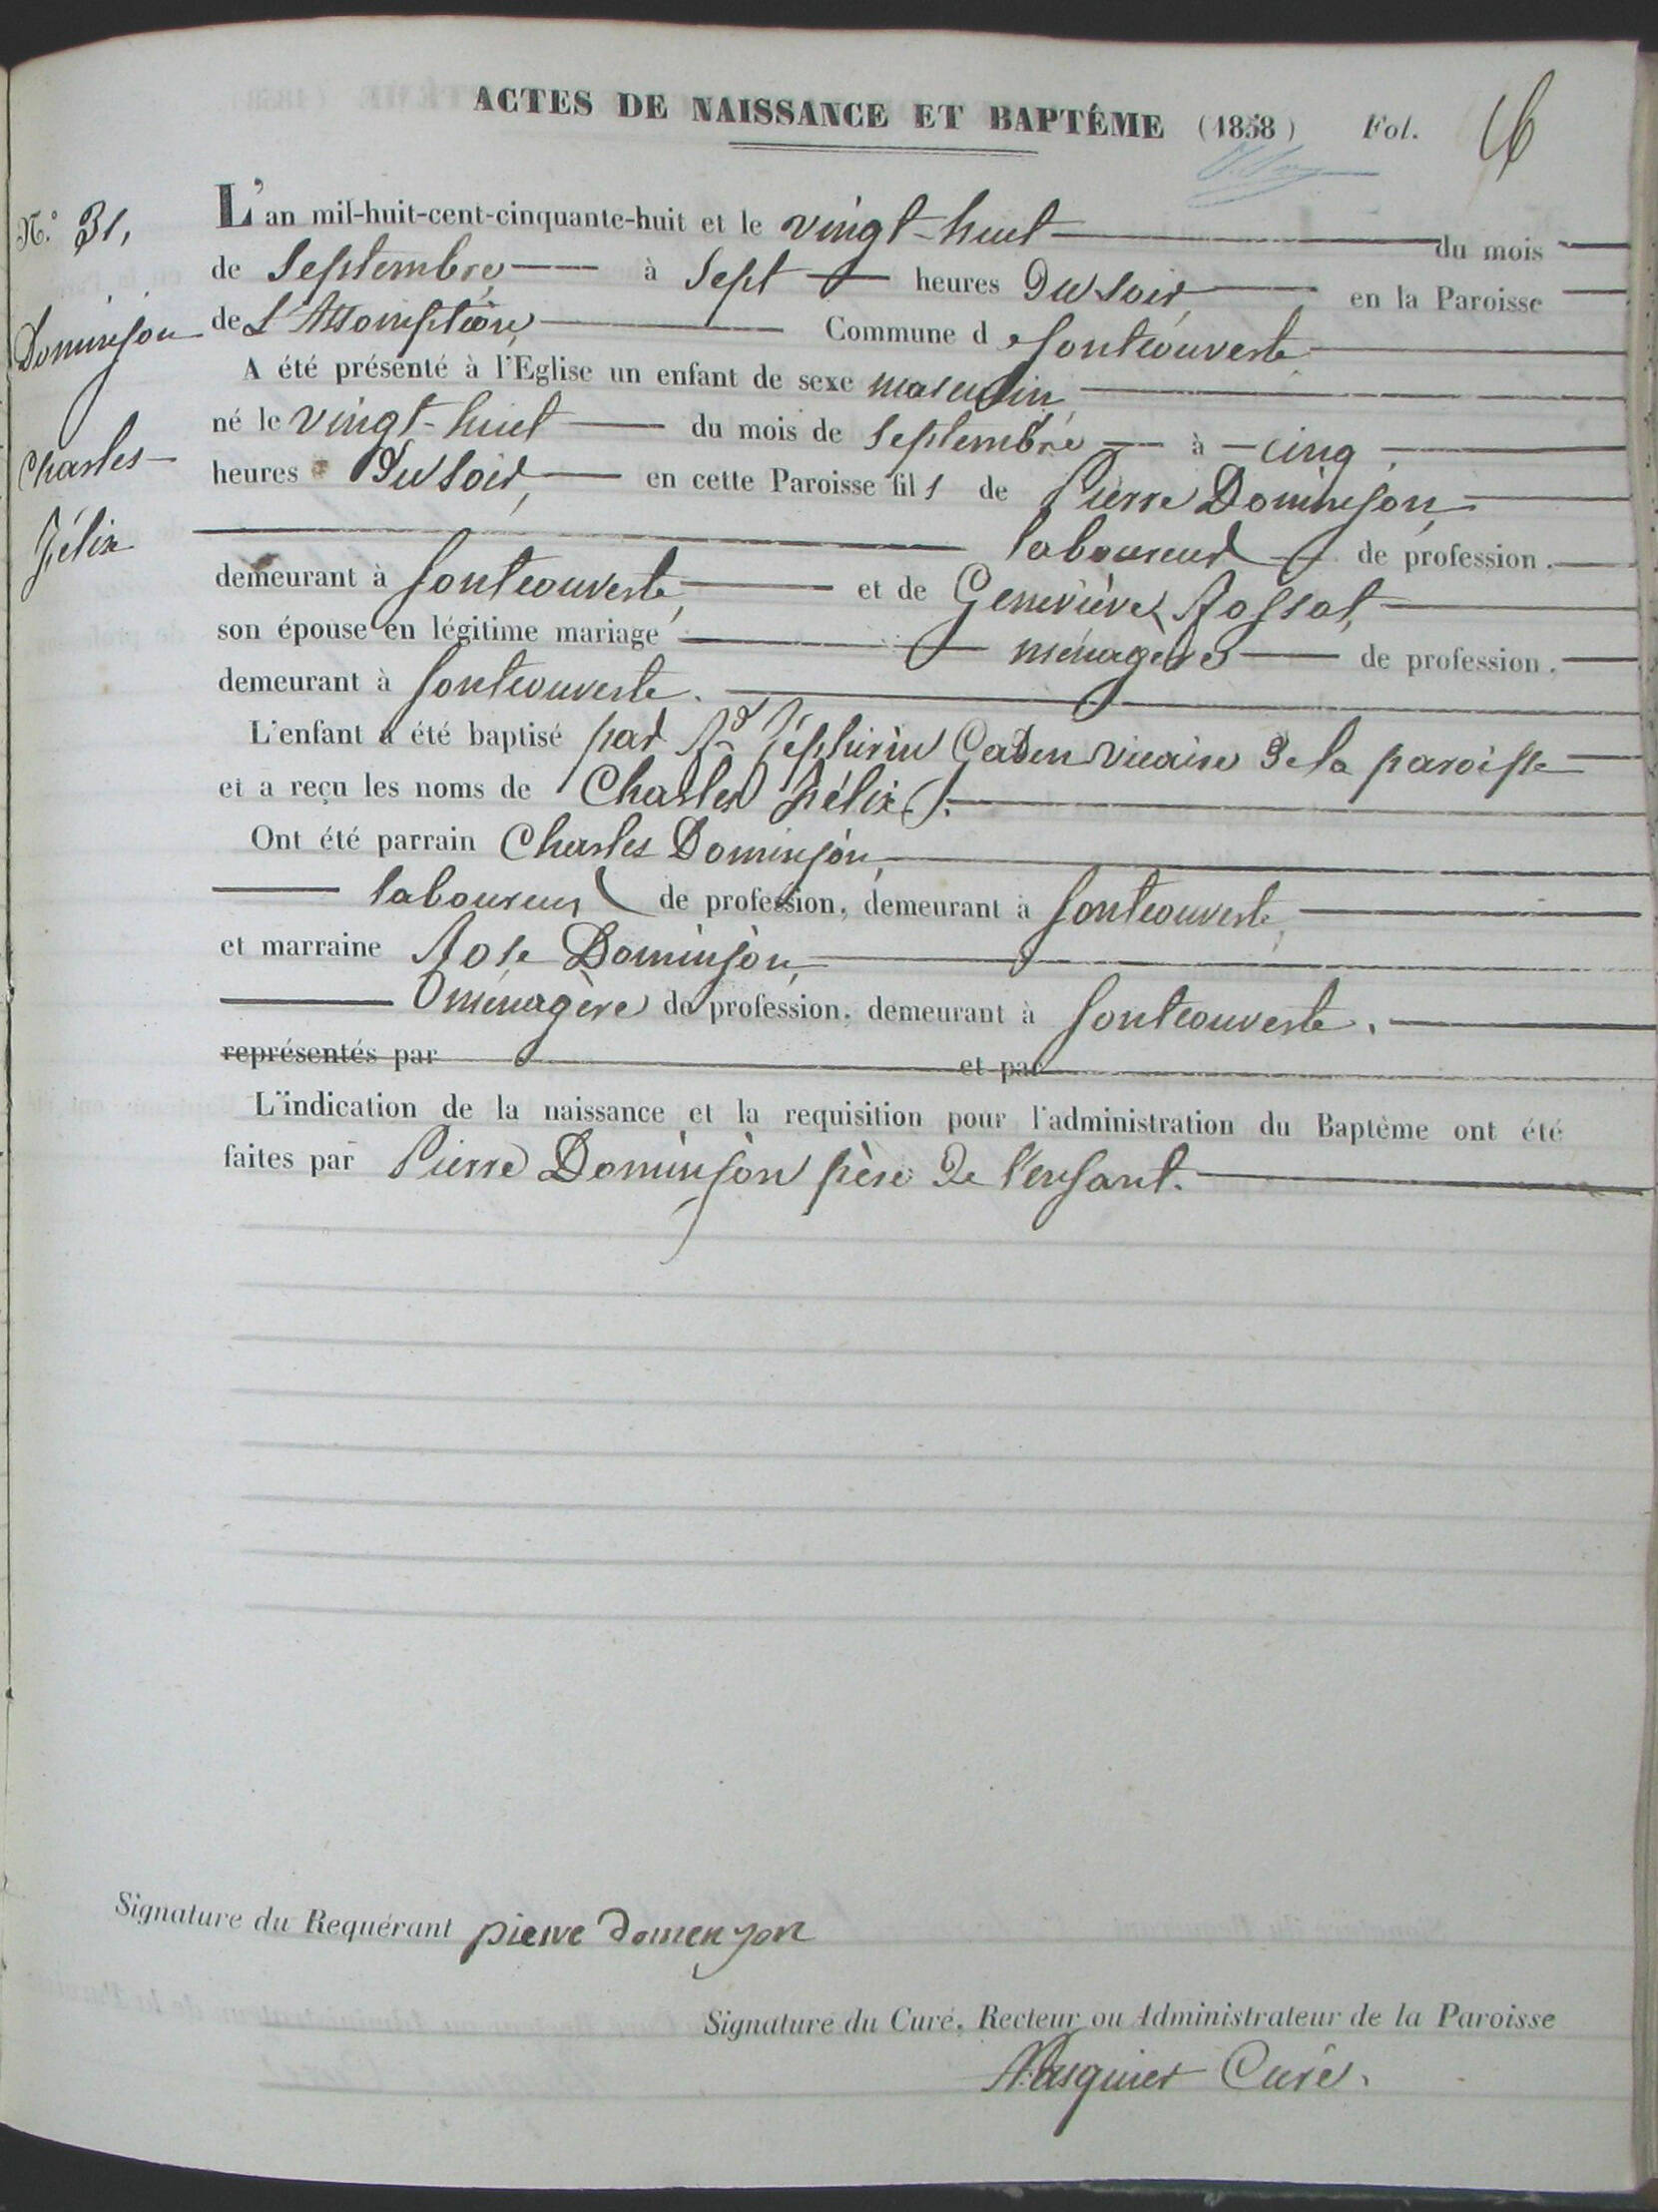 ACTES DE NAISSANCE ET BAPTÊME (1858) Fol. 16
N.° 31,
Dominjon
Charles
Félix
L'an mil-huit-cent-cinquante-huit et le vingt-huit du mois
de Septembre, à Sept heures du soir, en la Paroisse
de L'Assomption, Commune de Fontcouverte
A été présenté à l'Eglise un enfant de sexe masculin
né le vingt-huit du mois de Septembre à cinq
heures du soir, en cette Paroisse fils de Pierre Dominjon,
laboureur de profession.
demeurant à Fontcouverte, et de Geneviève Rossat,
son épouse en légitime mariage ménagère de profession.
demeurant à Fontcouverte.
L'enfant a été baptisé par Rd Zéphirin vicaire de la paroisse
et a reçu les noms de Charles Félix.
Ont été parrain Charles Dominjon,
laboureur de profession, demeurant à Fontcouverte,
et marraine Rose Dominjon,
ménagère de profession, demeurant à Fontcouverte.
représentés par et par
L'indication de la naissance et la requisition pour l'administration du Baptême ont été
faites par Pierre Dominjon père de l'enfant.
Signature du Requérant pierre domenjon
Signature du Curé, Recteur ou Administrateur de la Paroisse
Curé.